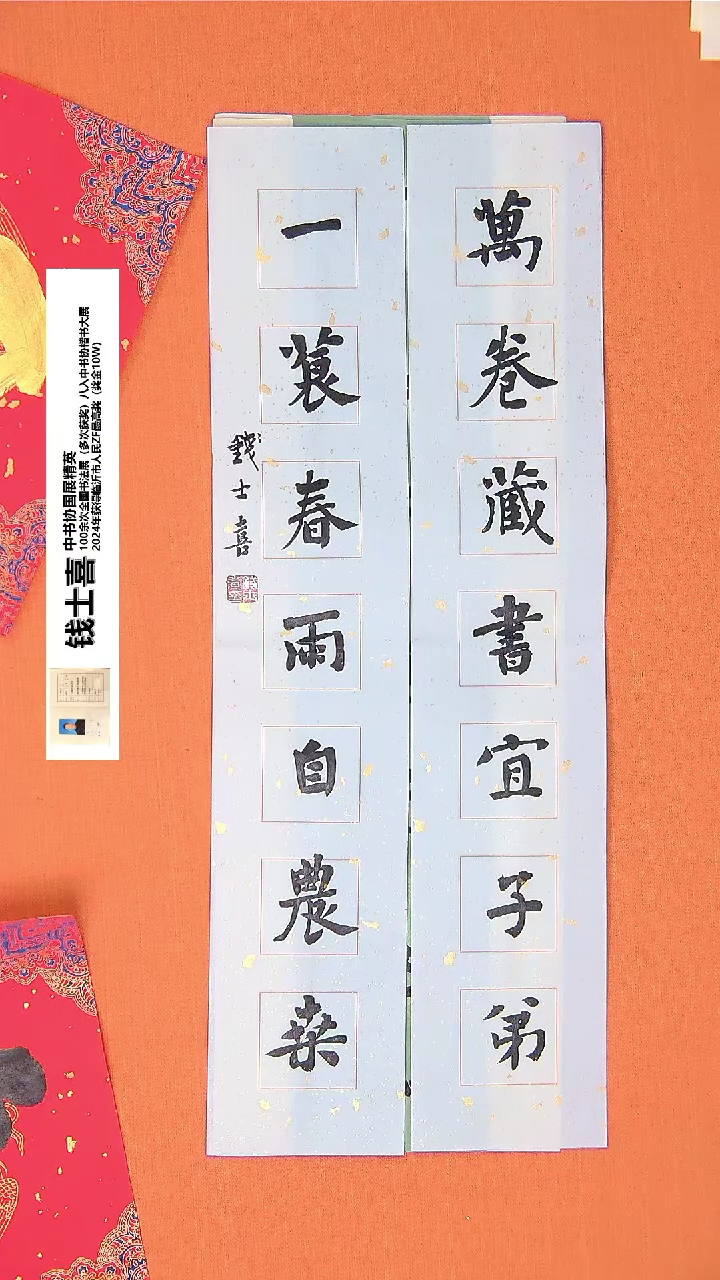 萬卷藏書宜子弟
一蓑春雨自農桒
錢士喜
钱士喜
中书协国展精英
100余次全国书法展（多次获奖）八入中书协楷书大展
2024年获得临沂市人民ZF最高奖（奖金10W）